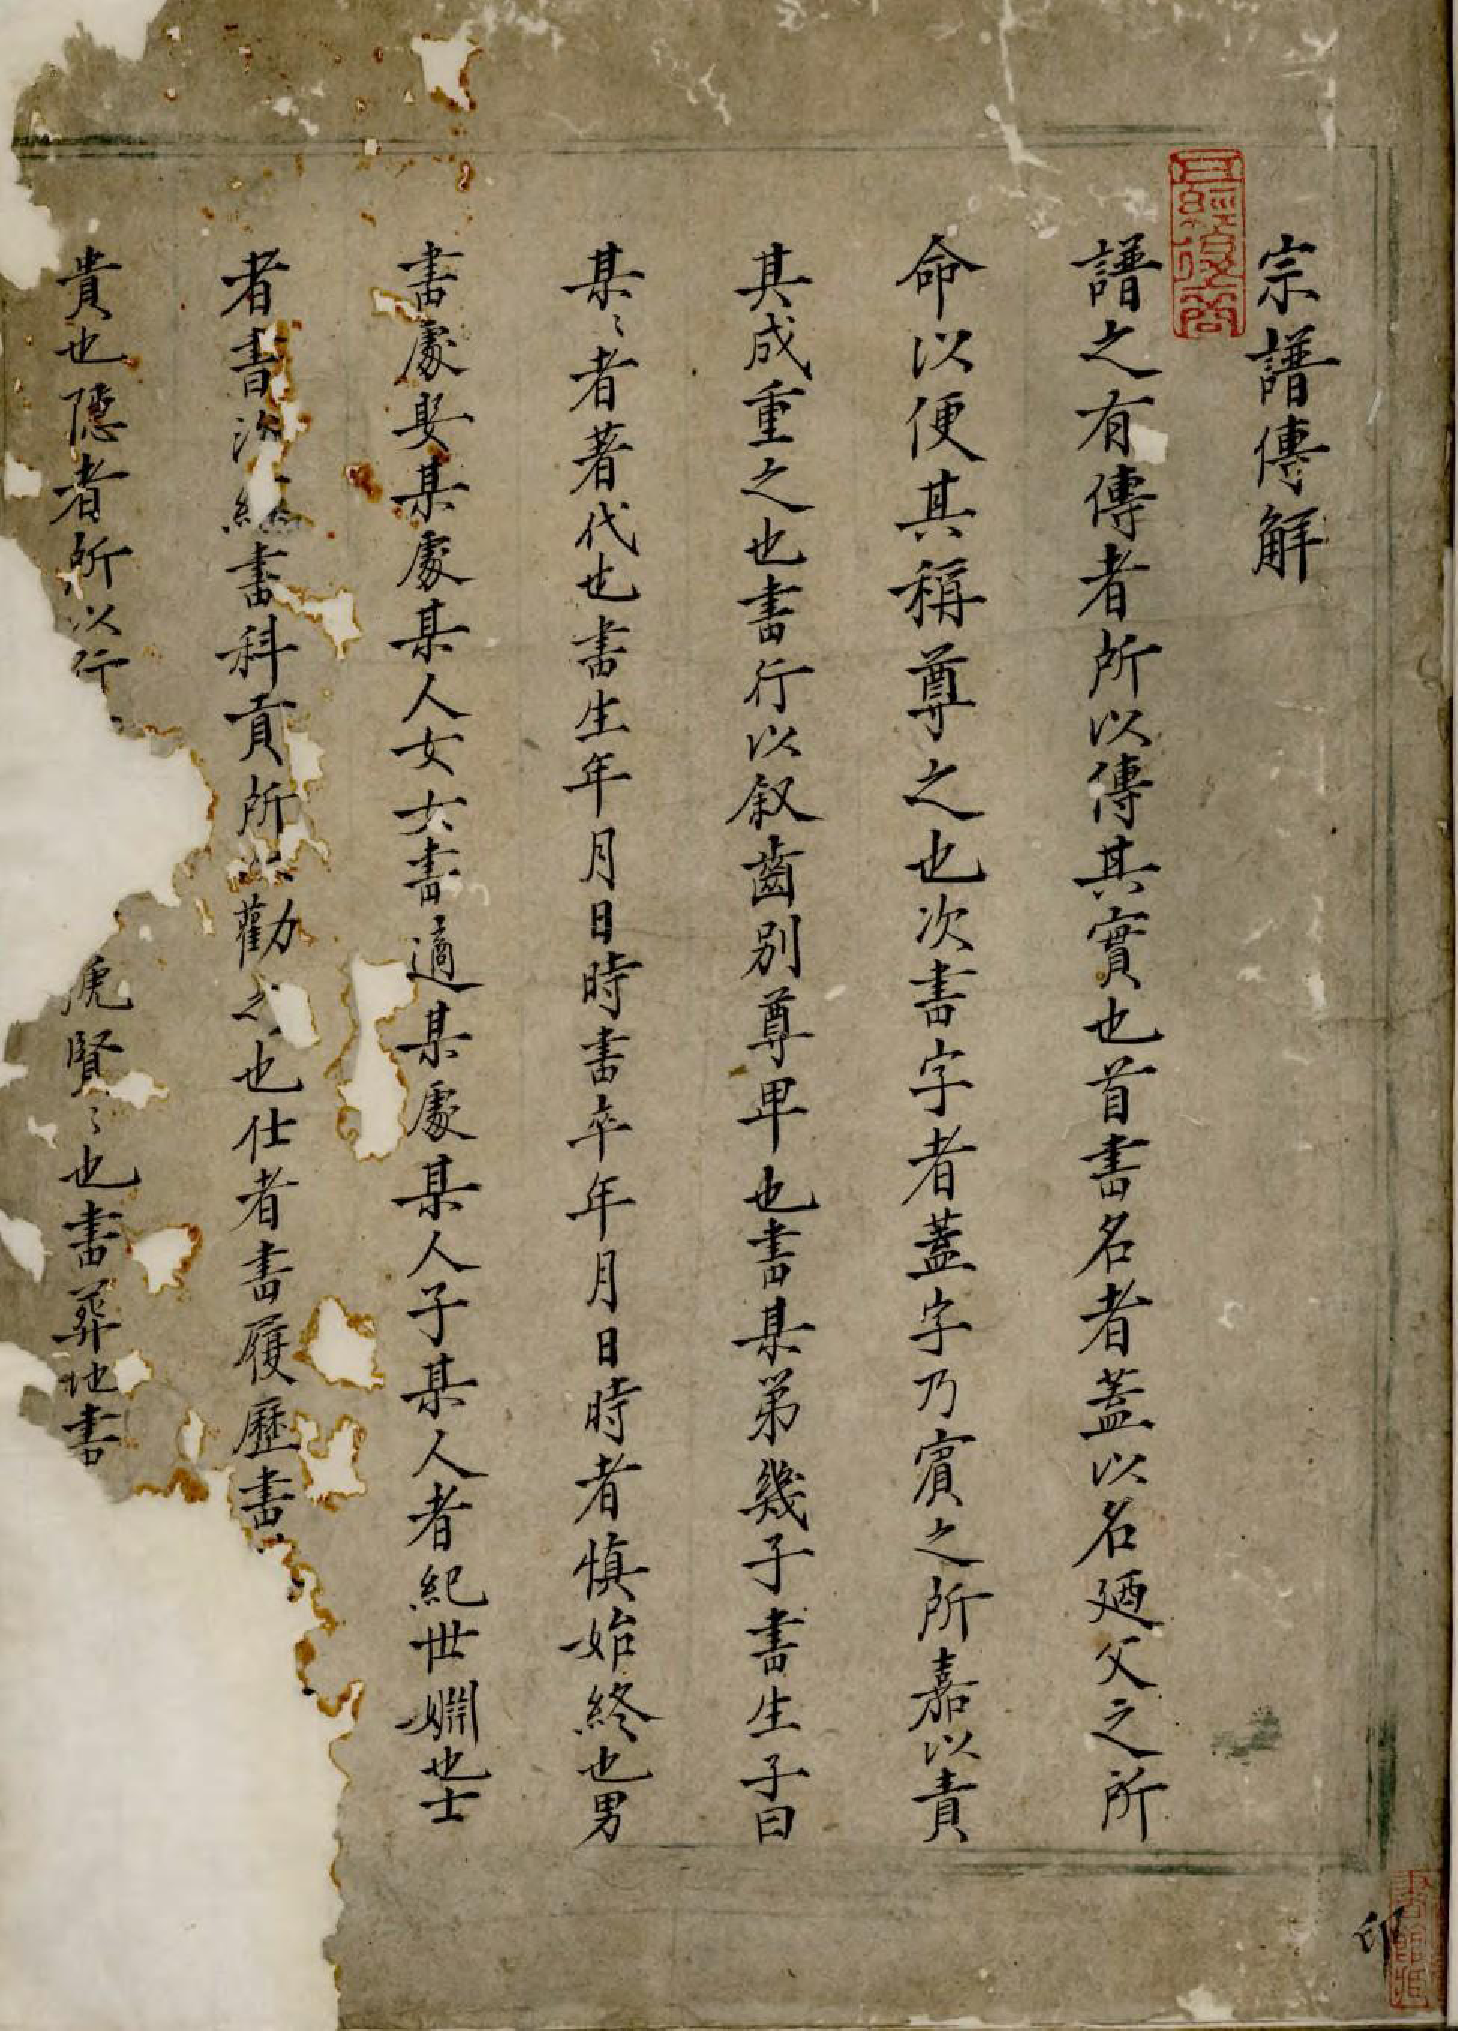 宗譜傳解
譜之有傳者所以傳其實也首書名者蓋以名廼父之所
命以便其稱尊之也次書字者蓋字乃賓之所嘉以責
其成重之也書行以叙齒別尊卑也書某弟幾子書生子曰
某〻者著代也書生年月日時書卒年月日時者慎始終也男
書處娶某處某人女女書適某處某人子某人者紀世婣也士
者書治經書科貢所以勸之也仕者書履歷書
貴也隱者所以行
虎賢〻也書葬地書
印